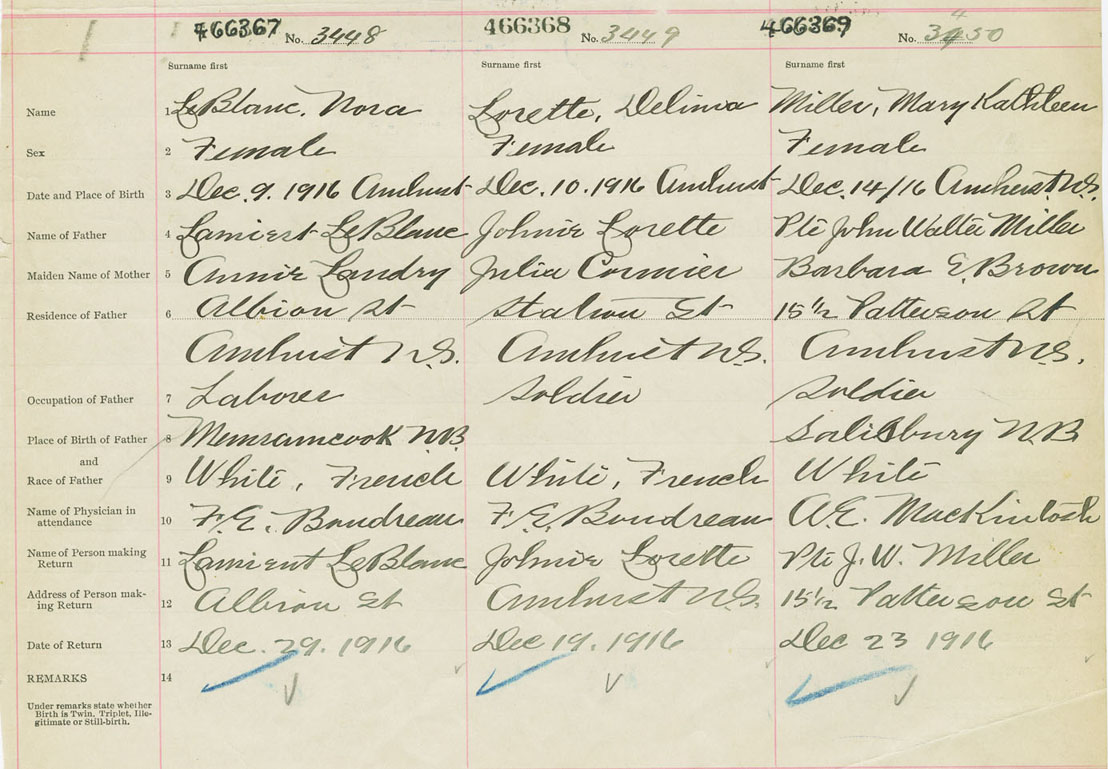 466367 No. 3448 466368 No. 3449 466369 No. 3450
Surname first Surname first Surname first
Name 1 LeBlanc, Nora Lorette, Delima Miller, Mary Kathleen
Sex 2 Female Female Female
Date and Place of Birth 3 Dec. 9. 1916 Amhust Dec. 10. 1916 Amhust Dec. 14/16 Amherst N.S.
Name of Father 4 LeBlanc Johnie Lorette Pte John Walter Miller
Maiden Name of Mother 5 Annie Landry Julia Cormier Barbara E. Brown
Residence of Father 6 Albion St Station St 15 1/2 Patterson St
Amhurst N.S. Amhurst N.S. Amhurst N.S.
Occupation of Father 7 Laborer Soldier Soldier
Place of Birth of Father 8 Memramcook N.B Salisbury N.B
and
Race of Father 9 White, French White, French White
Name of Physician in
attendance 10 F. E. Boudreau F. E. Boudreau A.E. MacKintosh
Name of Person making
Return 11 LeBlanc Johnie Lorette Pte J. W. Miller
Address of Person mak-
ing Return 12 Albion St Amhurst N.S. 15 1/2 Patterson St
Date of Return 13 Dec. 29. 1916 Dec 19. 1916 Dec 23 1916
REMARKS 14
Under remarks state whether
Birth is Twin, Triplet, Ille-
gitimate or Still-birth.